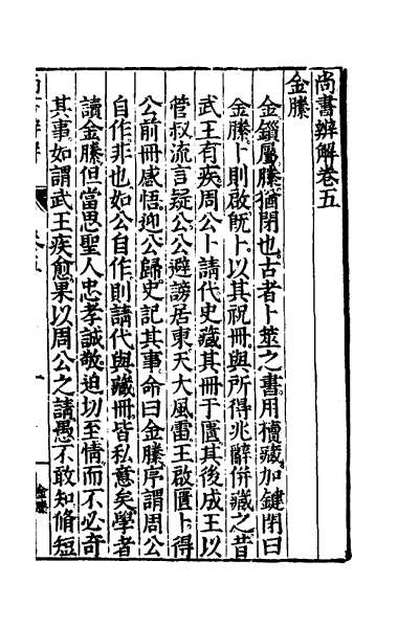 尚書辨解卷五
金縢
金鐵屬縢猶閉也古者卜筮之書用櫝藏加鍵閉曰
金縢卜則啟既卜以其祝冊與所得兆辭併藏之昔
武王有疾周公卜請代史藏其冊于匱其後成王以
管叔流言疑公公避謗居東天大風雷王啟匱卜得
公前冊感悟迎公歸史記其事命曰金縢序謂周公
自作非也如公自作則請代與藏冊皆私意矣學者
讀金縢但當思聖人忠孝誠敬迫切至情而不必奇
其事如謂武王疾愈果以周公之請愚不敢知脩短
金縢